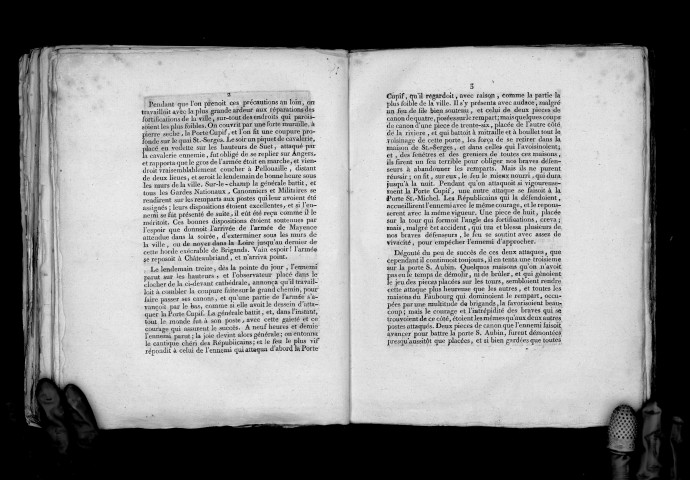 2
Pendant que l'on prenoit ces précautions au loin, on
travailloit avec la plus grande ardeur aux réparations des
fortifications de la ville, sur-tout des endroits qui parois-
soient les plus foibles. On couvrit par une forte muraille, à
pierre seche, la Porte Cupif, et l'on fit une coupure pro-
fonde sur le quai St.-Serges. Le soir un piquet de cavalerie,
placé en vedette sur les hauteurs de Suet, attaqué par
la cavalerie ennemie, fut obligé de se replier sur Angers,
et rapporta que le gros de l'armée étoit en marche, et vien-
droit vraisemblablement coucher à Pellouaille, distant
de deux lieues, et seroit le lendemain de bonne heure sous
les murs de la ville. Sur-le-champ la générale battit, et
tous les Gardes Nationaux, Canonniers et Militaires se
rendirent sur les remparts aux postes qui leur avoient été
assignés; leurs dispositions étoient excellentes, et si l'en-
nemi se fût présenté de suite, il eût été reçu comme il le
méritoit. Ces bonnes dispositions étoient soutenues par
l'espoir que donnoit l'arrivée de l'armée de Mayence
attendue dans la soirée, d'exterminer sous les murs de
la ville, ou de noyer dans la Loire jusqu'au dernier de
cette horde exécrable de Brigands. Vain espoir! l'armée
se reposoit à Châteaubriand, et n'arriva point.
Le lendemain treize, dès la pointe du jour, l'ennemi
parut sur les hauteurs, et l'observateur placé dans le
clocher de la ci-devant cathédrale, annonça qu'il travail-
loit à combler la coupure faite sur le grand chemin, pour
faire passer ses canons, et qu'une partie de l'armée s'a-
vançoit par le bas, comme si elle avoit le dessein d'atta-
quer la Porte Cupif. La générale battit, et, dans l'instant,
tout le monde fut à son poste, avec cette gaieté et ce
courage qui assurent le succès. A neuf heures et demie
l'ennemi parut; la joie devint alors générale; on entonna
le cantique chéri des Républicains; et le feu le plus vif
répondit à celui de l'ennemi qui attaqua d'abord la Porte
3
Cupif, qu'il regardoit, avec raison, comme la partie la
plus foible de la ville. Il s'y présenta avec audace, malgré
un feu de file bien soutenu, et celui de deux pieces de
canon de quatre, posées sur le rempart; mais quelques coups
de canon d'une piece de trente-six, placée de l'autre côté
de la riviere, et qui battoit à mitraille et à boulet tout le
voisinage de cette porte, les força de se retirer dans la
maison de St.-Serges, et dans celles qui l'avoisinoient;
et, des fenêtres et des greniers de toutes ces maisons,
ils firent un feu terrible pour obliger nos braves défen-
seurs à abandonner les remparts. Mais ils ne purent
réussir; on fit, sur eux, le feu le mieux nourri, qui dura
jusqu'à la nuit. Pendant qu'on attaquoit si vigoureuse-
ment la Porte Cupif, une autre attaque se faisoit à la
Porte St.-Michel. Les Républicains qui la défendoient,
accueillirent l'ennemi avec le même courage, et le repous-
serent avec la même vigueur. Une piece de huit, placée
sur la tour qui formoit l'angle des fortifications, creva;
mais, malgré cet accident, qui tua et blessa plusieurs de
nos braves défenseurs, le feu se soutint avec assez de
vivacité, pour empêcher l'ennemi d'approcher.
Dégouté du peu de succès de ces deux attaques, que
cependant il continuoit toujours, il en tenta une troisieme
sur la porte S. Aubin. Quelques maisons qu'on n'avoit
pas eu le temps de démolir, ni de brûler, et qui gênoient
le jeu des pieces placées sur les tours, sembloient rendre
cette attaque plus heureuse que les autres, et toutes les
maisons du Faubourg qui dominoient le rempart, occu-
pées par une multitude de brigands, la favorisoient beau-
coup; mais le courage et l'intrépidité des braves qui se
trouvoient de ce côté, étoient les mêmes qu'aux deux autres
postes attaqués. Deux pieces de canon que l'ennemi faisoit
avancer pour battre la porte S. Aubin, furent démontées
presqu'aussitôt que placées, et si bien gardées que toutes